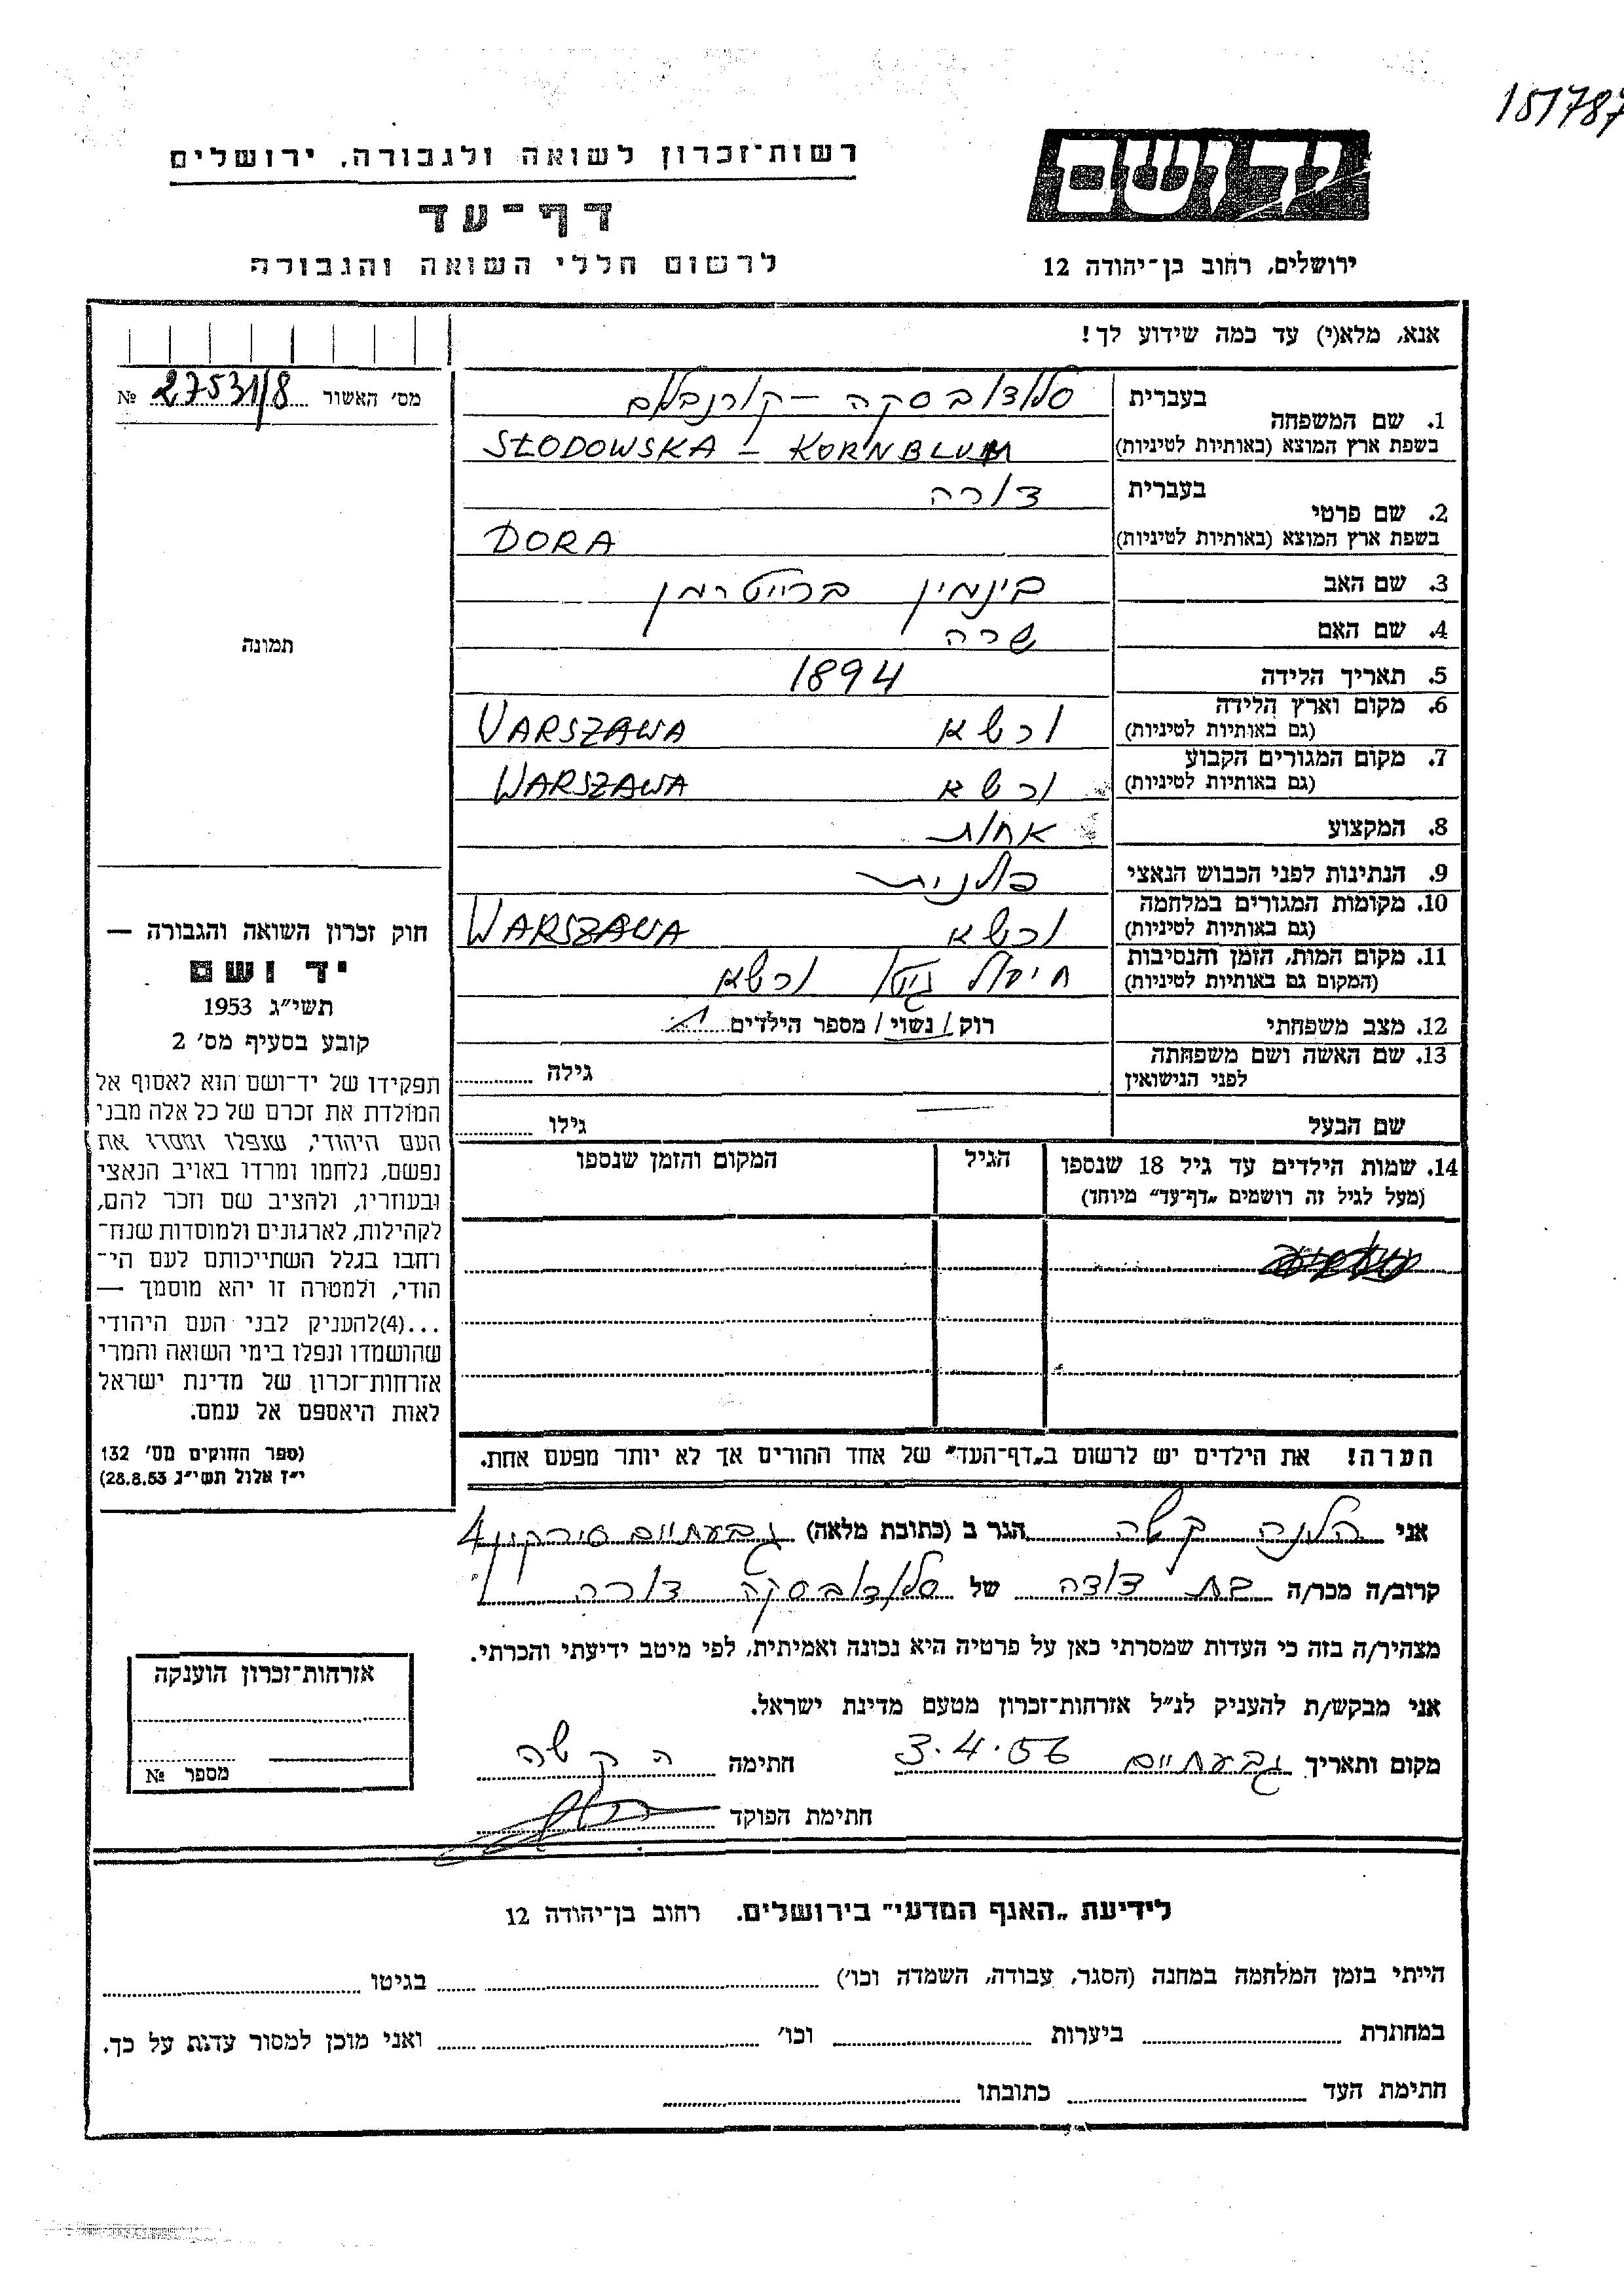 151787
רשות־זכרון לשואה ולגבורה, ירושלים
יד ושם
דף־עד
לרשום חללי השואה והגבורה
ירושלים, רחוב בן־יהודה 12
אנא, מלא(י) עד כמה שידוע לך!
מס׳ האשור 27531/8 №
1. שם המשפחה
בעברית סלודובסקה - קורנבלום
בשפת ארץ המוצא (באותיות לטיניות) SŁODOWSKA - KORNBLUM
2. שם פרטי
בעברית דורה
בשפת ארץ המוצא (באותיות לטיניות) DORA
3. שם האב בינמין ברייטרמן
4. שם האם שרה
5. תאריך הלידה 1894
6. מקום וארץ הלידה
(גם באותיות לטיניות) ורשא VARSZAWA
7. מקום המגורים הקבוע
(גם באותיות לטיניות) ורשא WARSZAWA
8. המקצוע אחות
9. הנתינות לפני הכבוש הנאצי פולנית
10. מקומות המגורים במלחמה
(גם באותיות לטיניות) ורשא WARSZAWA
11. מקום המות, הזמן והנסיבות
(המקום גם באותיות לטיניות) חיסול גיטו ורשא
12. מצב משפחתי רוק/נשוי/ מספר הילדים 1
13. שם האשה ושם משפחתה
לפני הנישואין גילה
שם הבעל גילו
14. שמות הילדים עד גיל 18 שנספו הגיל המקום והזמן שנספו
(מעל לגיל זה רושמים „דף־עד” מיוחד)
הערה! את הילדים יש לרשום ב„דף־העד” של אחד ההורים אך לא יותר מפעם אחת.
תמונה
חוק זכרון השואה והגבורה —
יד ושם
תשי״ג 1953
קובע בסעיף מס׳ 2
תפקידו של יד־ושם הוא לאסוף אל
המולדת את זכרם של כל אלה מבני
העם היהודי, שנפלו ומסרו את
נפשם, נלחמו ומרדו באויב הנאצי
ובעוזריו, ולהציב שם וזכר להם,
לקהילות, לארגונים ולמוסדות שנח־
רחבו בגלל השתייכותם לעם הי־
הודי, ולמטרה זו יהא מוסמך —
...(4)להעניק לבני העם היהודי
שהושמדו ונפלו בימי השואה והמרי
אזרחות־זכרון של מדינת ישראל
לאות היאספם אל עמם.
(ספר החוקים מס׳ 132
י״ז אלול תשי״ג 28.8.53)
אני הלנה קשה הגר ב (כתובת מלאה) גבעתיים סירקין 4
קרוב/ה מכר/ה בת דודה של סלודובסקה דורה
מצהיר/ה בזה כי העדות שמסרתי כאן על פרטיה היא נכונה ואמיתית, לפי מיטב ידיעתי והכרתי.
אני מבקש/ת להעניק לנ״ל אזרחות־זכרון מטעם מדינת ישראל.
מקום ותאריך גבעתיים 3.4.56 חתימה ה קשה
חתימת הפוקד
אזרחות־זכרון הוענקה
מספר №
לידיעת „האגף המדעי” בירושלים. רחוב בן־יהודה 12
הייתי בזמן המלחמה במחנה (הסגר, עבודה, השמדה וכו׳) בגיטו
במחתרת ביערות וכו׳ ואני מוכן למסור עדות על כך.
חתימת העד כתובתו